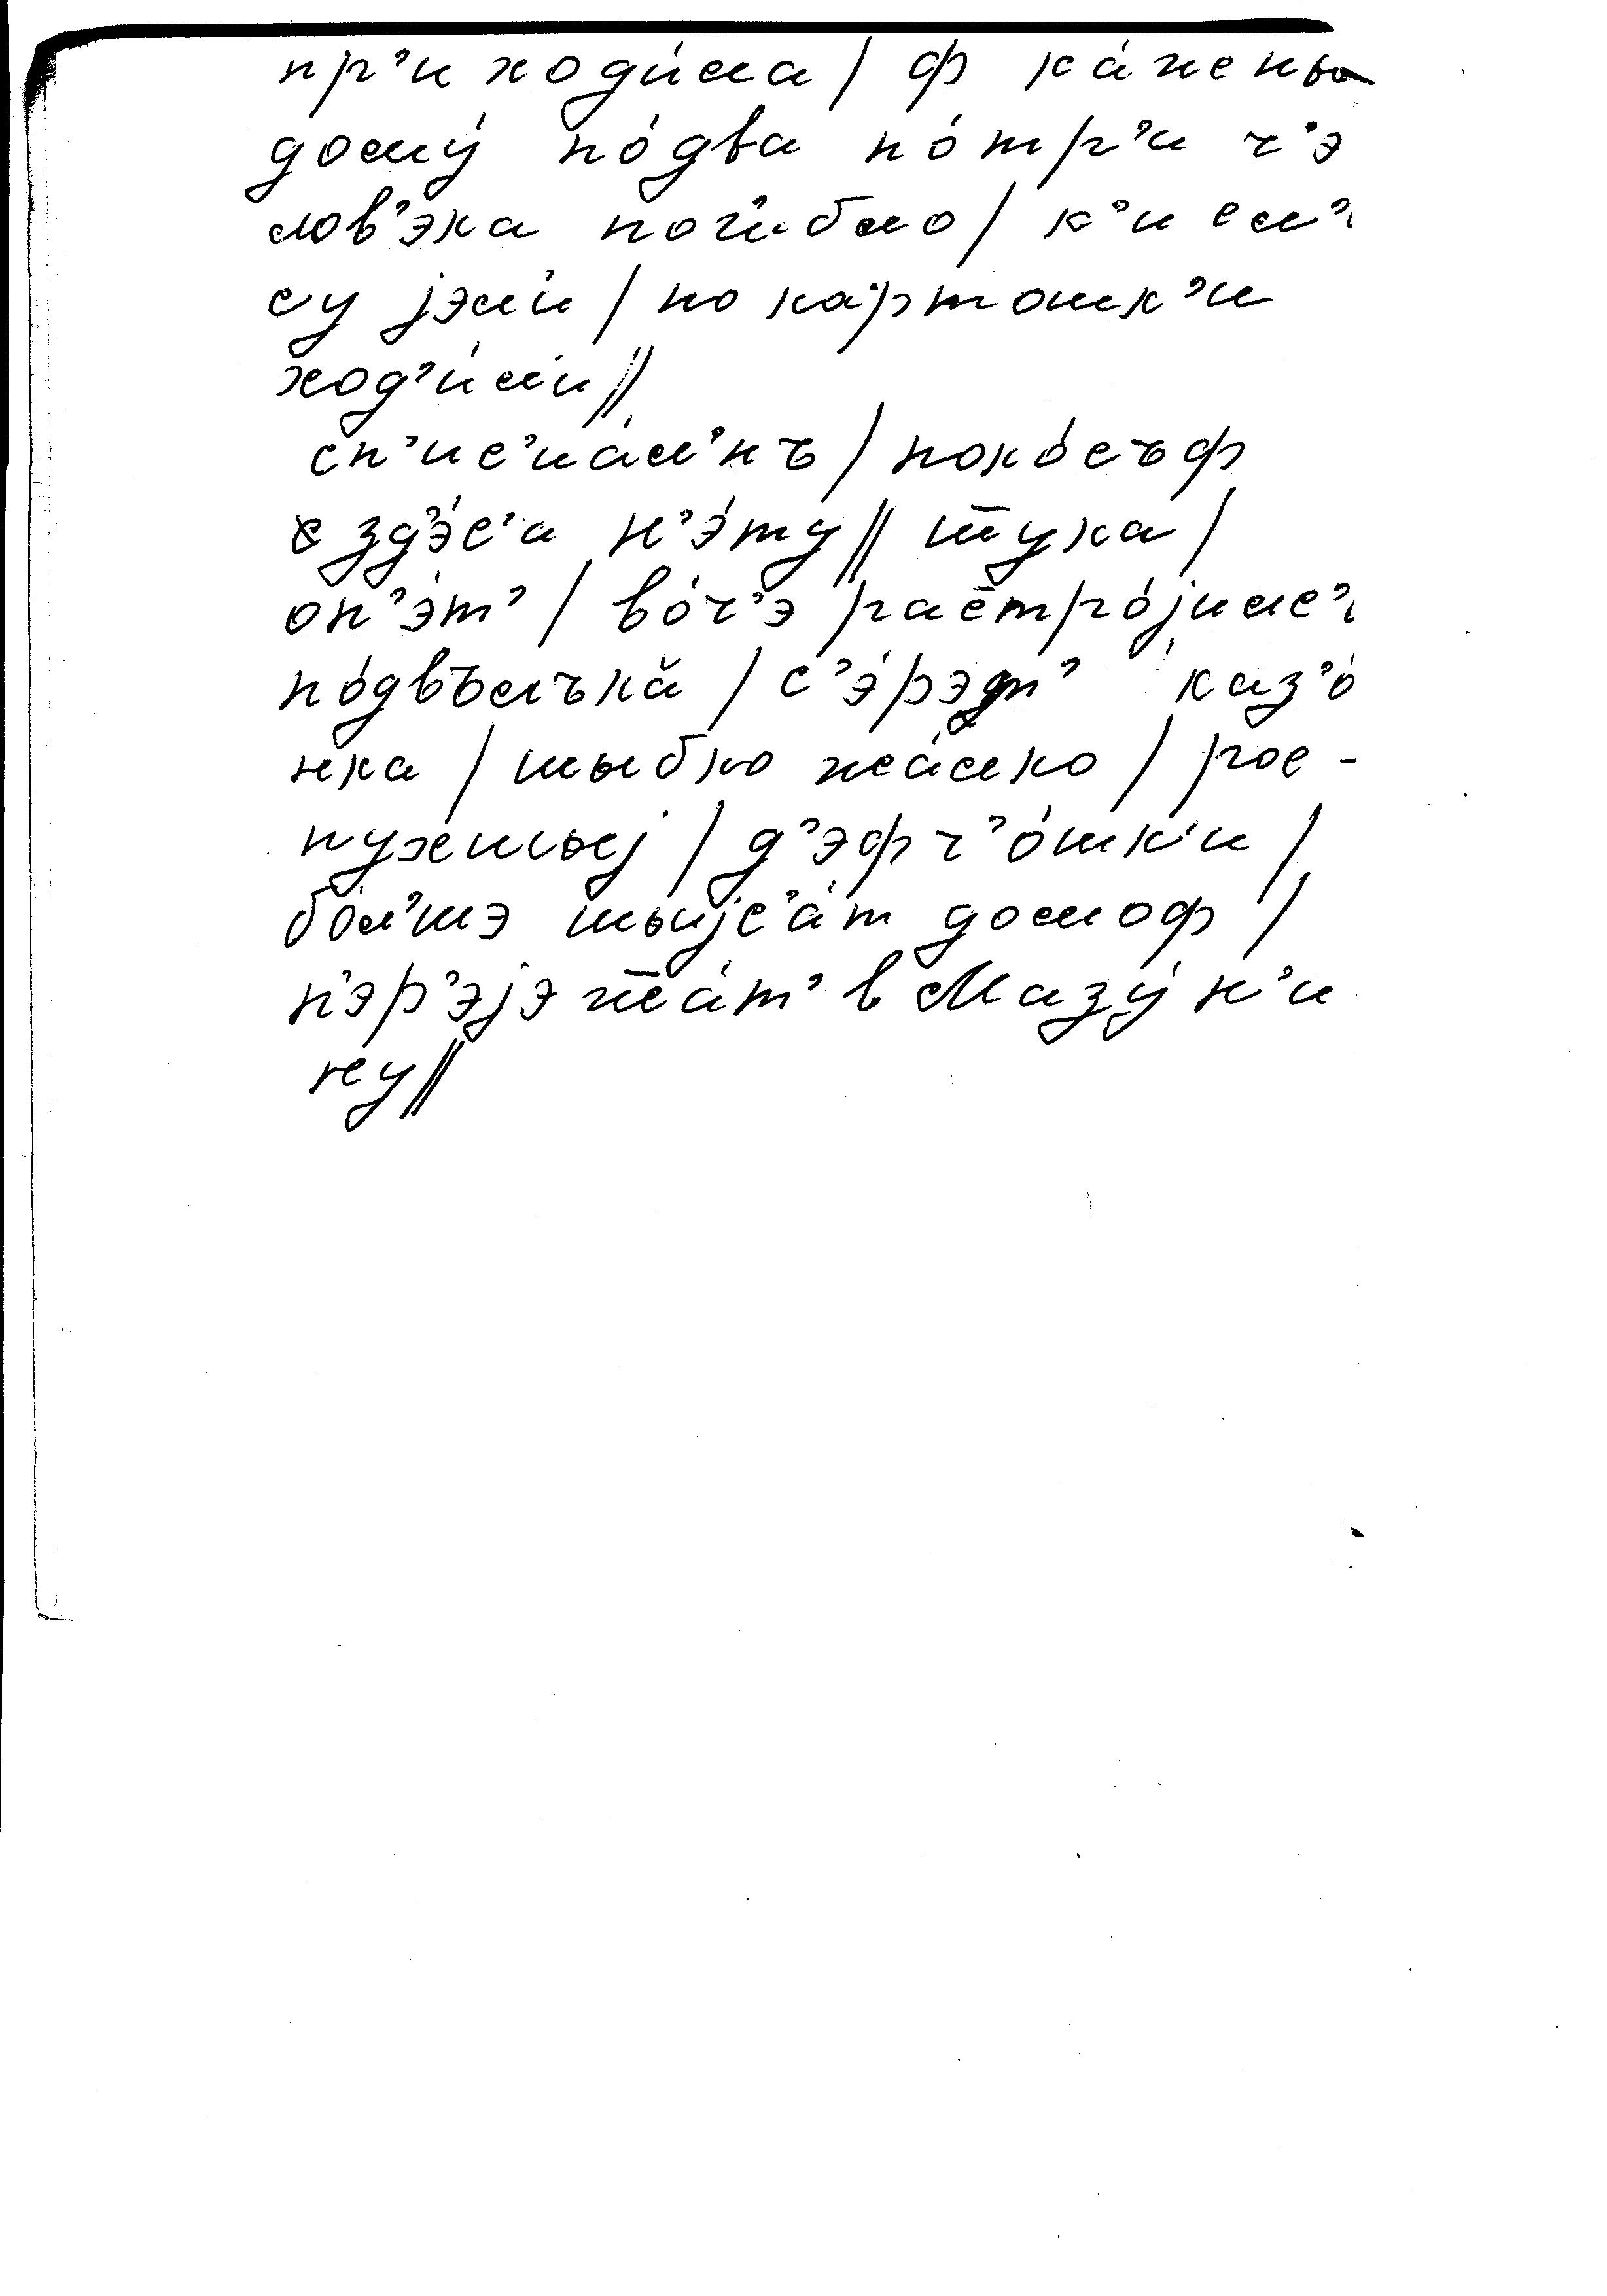 пр’и ходи́ла / ф ка́жены
дому́ по́два по́тр’и ч’э
лов’эка поги́бло / к’исл’i
су јэли / по ка́ртошк’и
ход’и́ли //
сп’ис’иа́л’нъ / покосъф
с зд’э́с’а н’э́ту // тука /
оп’э́т’ / во́ч’э растро́јилс’i
по́двъълъка / с’э́рэдт’ каз’о́
нка / шыбко жа́лко / рос-
пужыlыј / д’эфч’о́шк’и /
бо́л’шэ шыјс’а́т домоф /
п’эр’эјэжа́т’ в Мазу́н’и
ну //